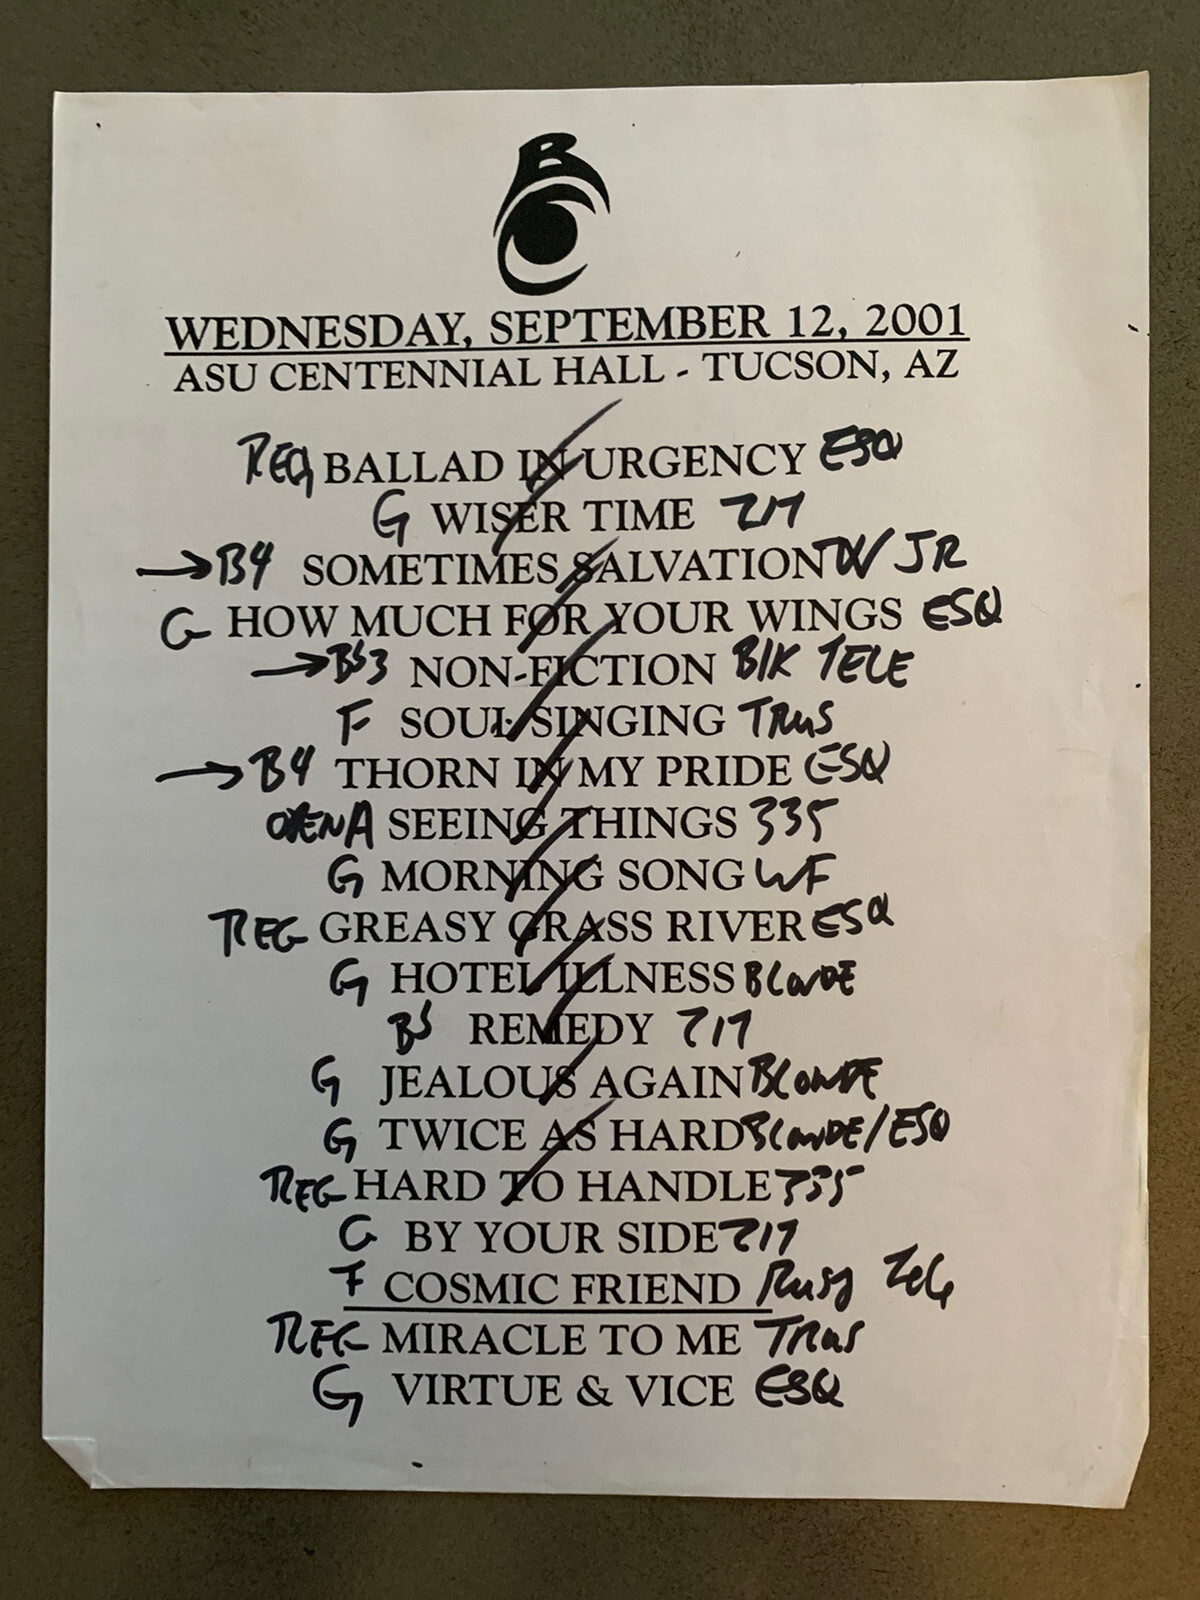 WEDNESDAY, SEPTEMBER 12, 2001
ASU CENTENNIAL HALL - TUCSON, AZ
REG BALLAD IN URGENCY ESQ
G WISER TIME 717
→B4 SOMETIMES SALVATION TV JR
G HOW MUCH FOR YOUR WINGS ESQ
→B♭3 NON-FICTION BlK TELE
F SOUL SINGING TRUS
→B4 THORN IN MY PRIDE ESQ
OPEN A SEEING THINGS 335
G MORNING SONG WF
REG GREASY GRASS RIVER ESQ
G HOTEL ILLNESS BLONDE
REMEDY 717
G JEALOUS AGAIN BLONDE
G TWICE AS HARD BLONDE/ESQ
REG HARD TO HANDLE 335
G BY YOUR SIDE 717
F COSMIC FRIEND
REG MIRACLE TO ME TRUS
G VIRTUE & VICE ESQ